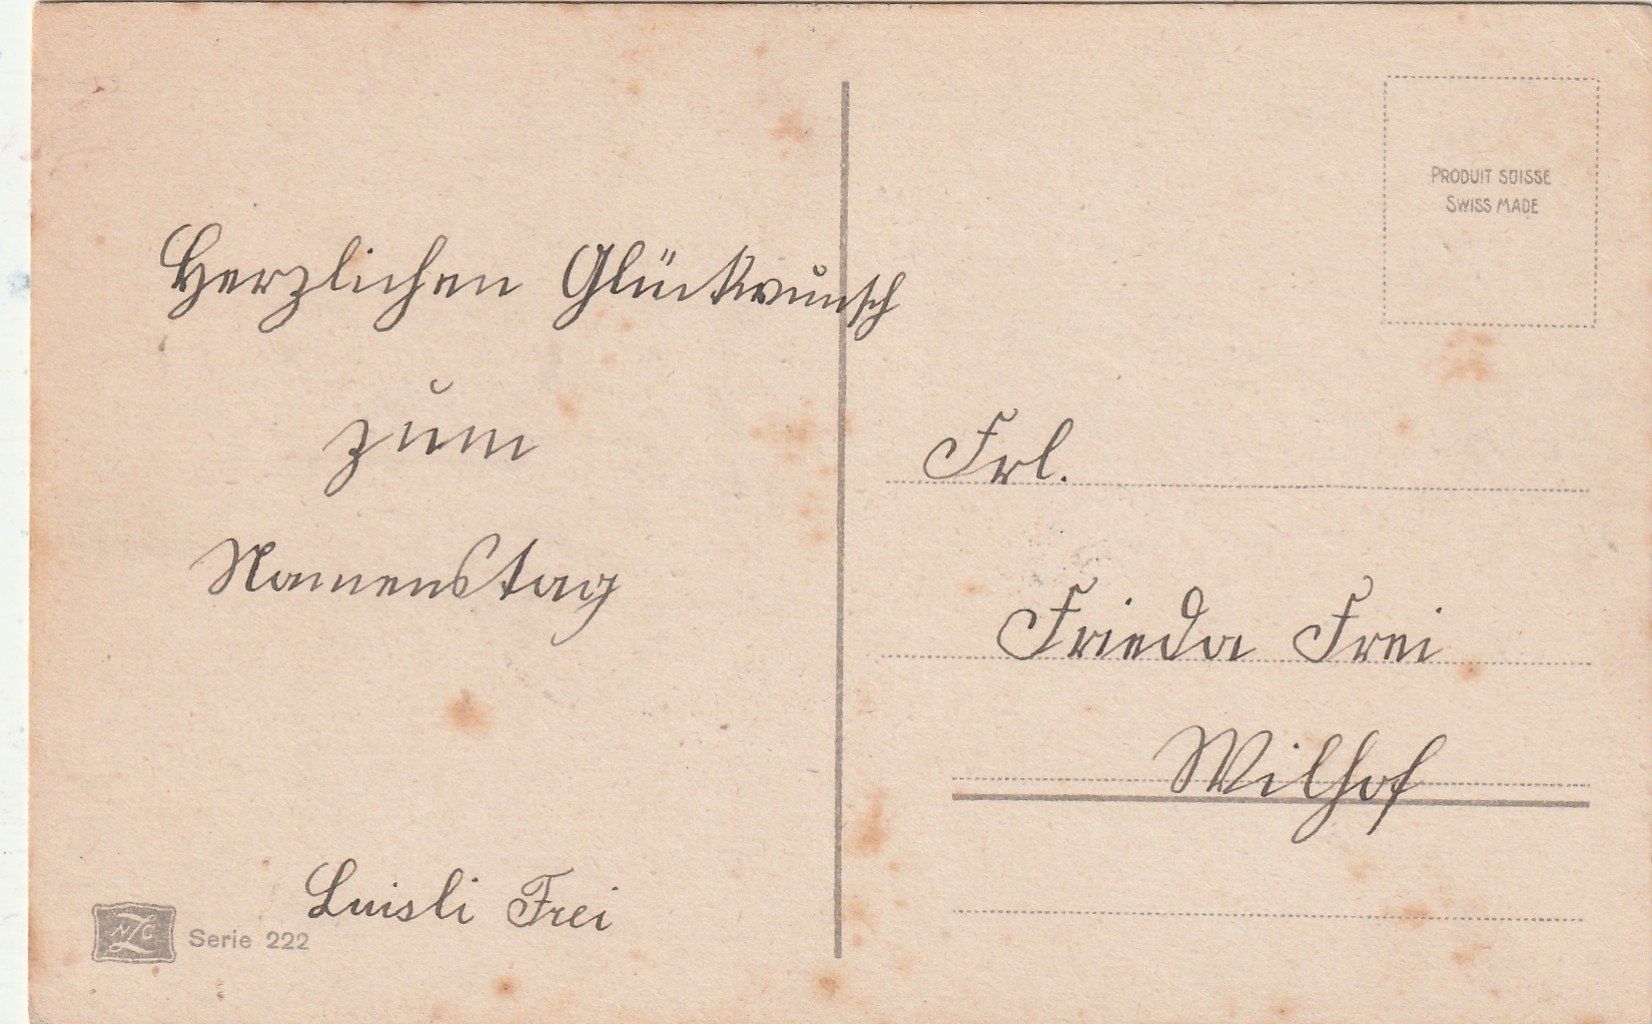 Herzlichen Glückwunsch
zum
Namenstag
Luisli Frei
NZG Serie 222
PRODUIT SUISSE
SWISS MADE
Frl.
Frieda Frei
Wilhof